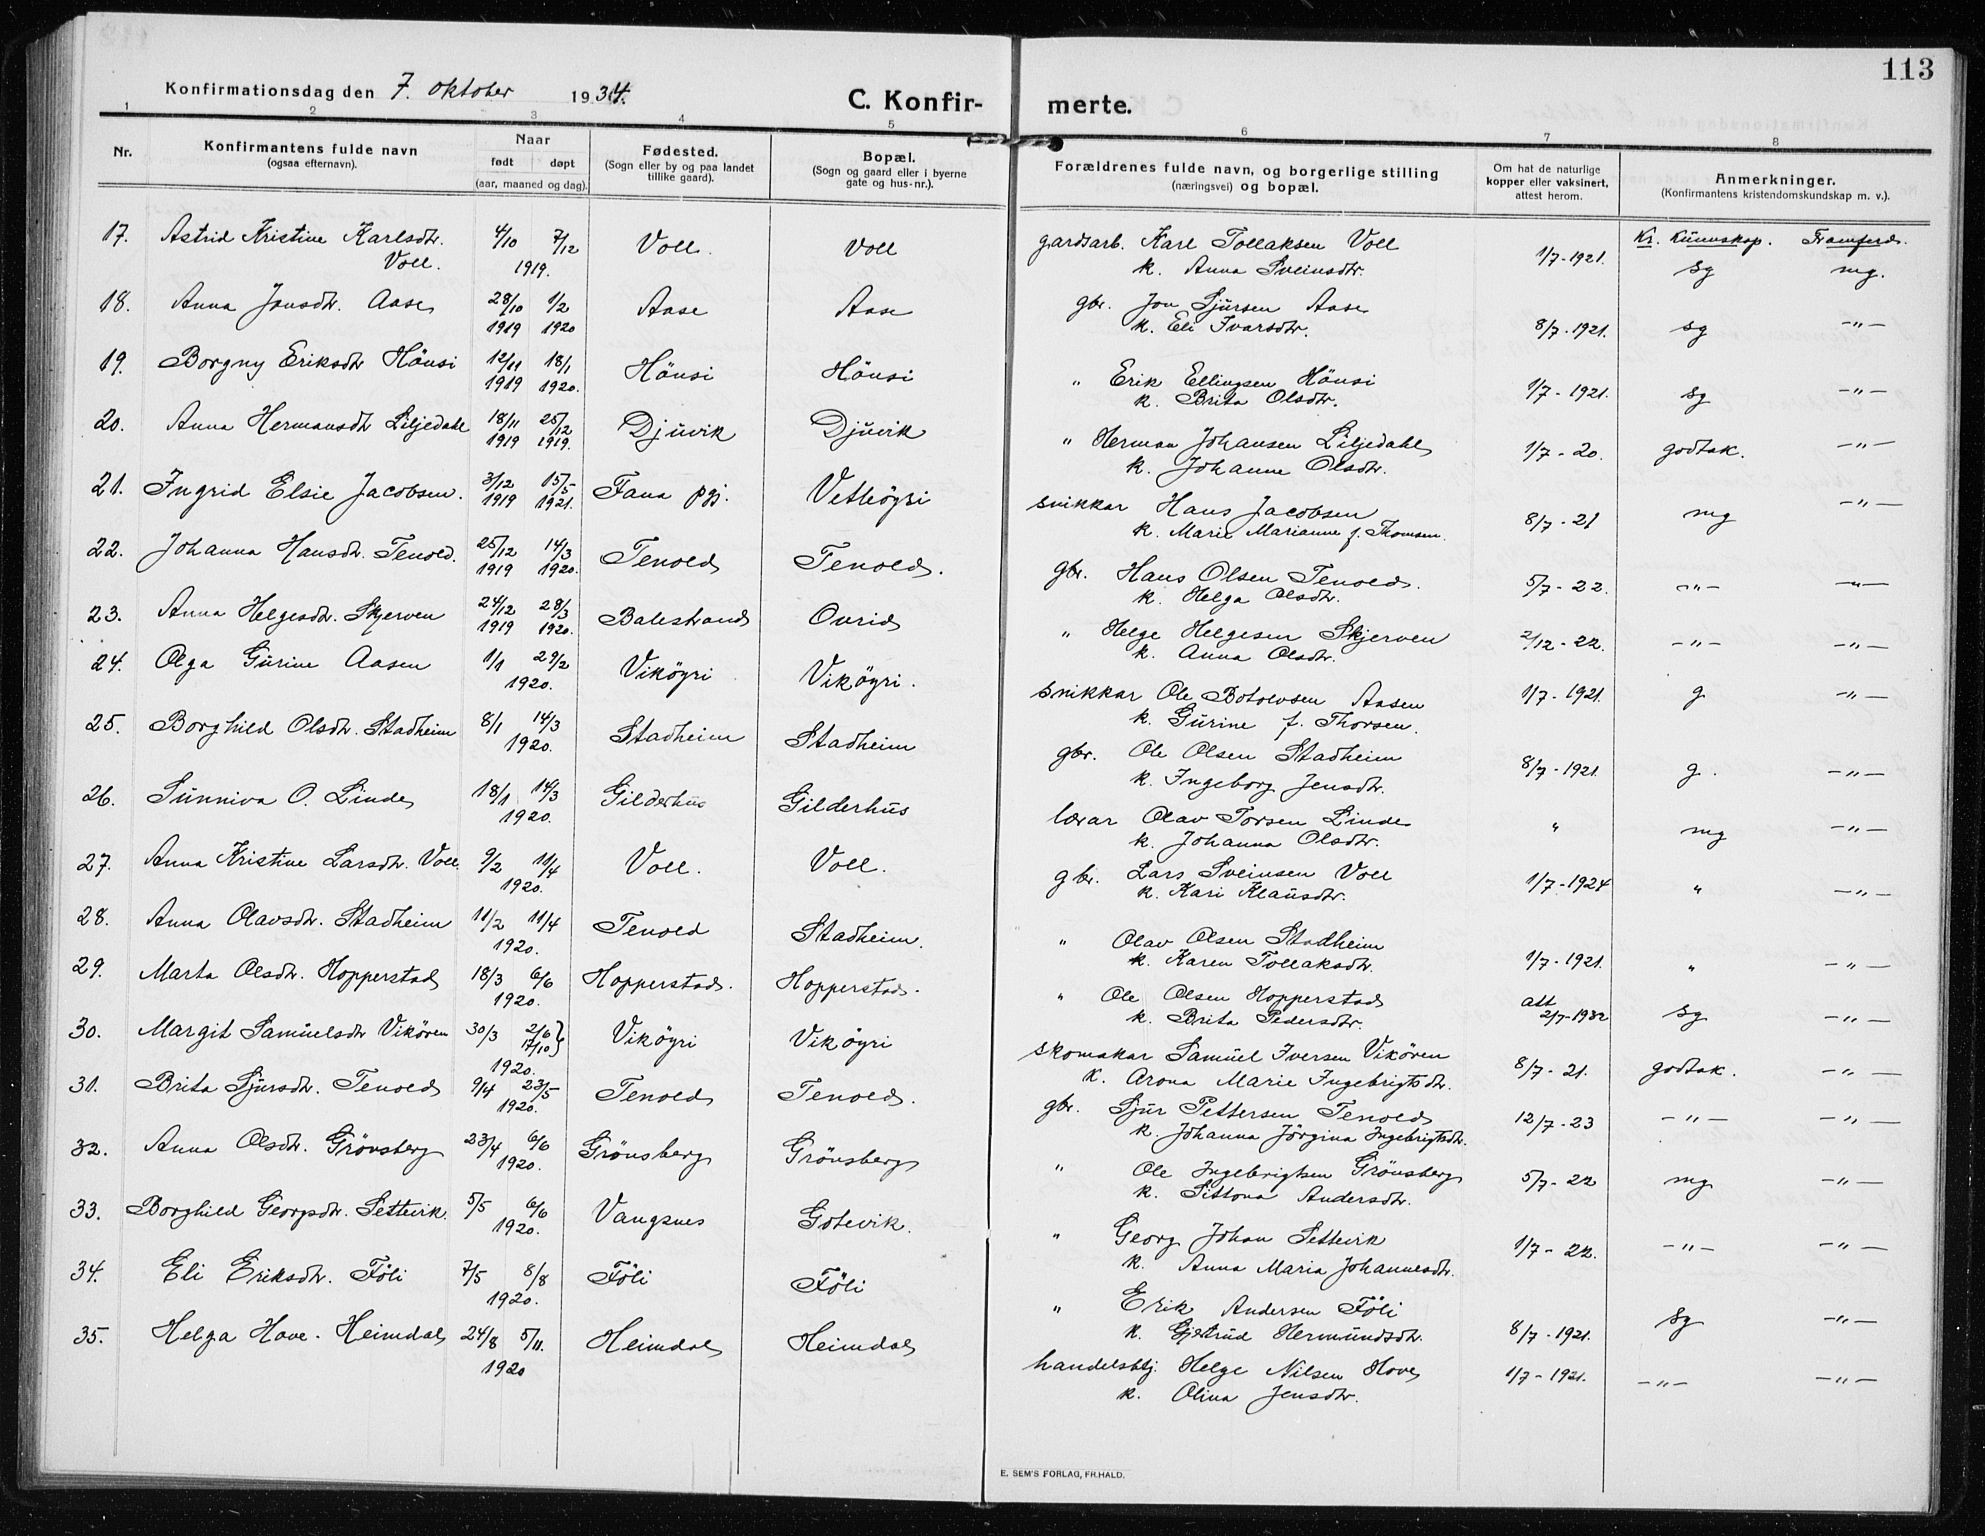 113
Konfirmationsdag den 7. oktober 1934.
C. Konfir- merte.
1 2 3 4 5 6 7 8
Nr.
Konfirmantens fulde navn
(ogsaa efternavn).
Naar
født døpt
(aar, maaned og dag).
Fødested.
(Sogn eller by og paa landet
tillike gaard).
Bopæl.
(Sogn og gaard eller i byerne
gate og hus-nr.).
Forældrenes fulde navn, og borgerlige stilling
(næringsvei) og bopæl.
Om hat de naturlige
kopper eller vaksinert,
attest herom.
Anmerkninger.
(Konfirmantens kristendomskundskap m. v.).
Kr. Kunnskap. Framferd.
17. Astrid Kristine Karlsdtr. 4/10 7/12 Voll. Voll gardsarb. Karl Tollaksen Voll 1/7-1921. sg mg.
Voll. 1919. k. Anna Sveinsdtr.
18. Anna Jonsdtr. Aase 28/10 1/2 Aase Aase gbr. Jon Sjursen Aase 8/7-1921. sg -"-
1919 1920 k. Eli Ivarsdtr.
19. Borgny Eriksdtr Hönsi 12/11 18/1 Hönsi Hönsi " Erik Ellingsen Hönsi 1/7-1921. sg -"-
1919 1920. k. Brita Olsdtr.
20. Anna Hermansdtr Liljedahl 18/11 25/12 Djuvik Djuvik " Herman Johansen Liljedahl 1/7-20. godtak. -"-
1919 1919. k. Johanne Olsdtr.
21. Ingrid Elsie Jacobsen. 3/12 15/5 Fana pgj. Vetleögri snikkar Hans Jacobsen 8/7-21 mg -"-
1919 1921. k. Marie Marianne f. Thomsen.
22. Johanna Hansdtr. Tenold. 25/12 14/3 Tenold Tenold. gbr. Hans Olsen Tenold. 5/7-22. -"- -"-
1919 1920. k. Helga Olsdtr.
23. Anna Helgesdtr. Skjerven 24/12 28/3 Balestrand Ovrid " Helge Helgesen Skjerven 2/12-22. -"- -"-
1919 1920. k. Anna Olsdtr.
24. Olga Gurine Aasen 1/1 29/2 Viköyri Viköyri. snikkar Ole Botolvsen Aasen 1/7-1921. g -"-
1920. k. Gurine f. Thorsen.
25. Borghild Olsdtr. Stadheim 8/1 14/3 Stadheim Stadheim gbr. Ole Olsen Stadheim 8/7-1921. g. -"-
1920. k. Ingeborg Jensdtr.
26. Sunniva O. Linde 18/1 14/3 Gilderhus Gilderhus lærar Olav Torsen Linde " mg -"-
1920. k. Johanna Olsdtr.
27. Anna Kristine Larsdtr. Voll 9/2 11/4 Voll. Voll. gbr. Lars Sveinsen Voll 1/7-1924 " -"-
1920. k. Kari Klausdtr.
28. Anna Olavsdtr. Stadheim 11/2 11/4 Tenold Stadheim. " Olav Olsen Stadheim 1/7-1921. " -"-
1920. k. Karen Tollaksdtr.
29. Marta Olsdtr. Hopperstad 18/3 6/6 Hopperstad. Hopperstad. " Ole Olsen Hopperstad att 2/7-1932 sg -"-
1920. k. Brita Pedersdtr.
30. Margit Samuelsdtr Vikören 30/3 2/6 17/10} Viköyri Viköyri skomakar Samuel Iversen Vikören 8/7-21. godtak. -"-
1920. k. Arona Marie Ingebrigtsdtr.
31. Brita Sjursdtr. Tenold 9/4 23/5 Tenold Tenold. gbr. Sjur Pettersen Tenold 12/7-23 -"- -"-
1920. k. Johanna Jörgina Ingebrigtsdtr.
32. Anna Olsdtr. Grönsberg 23/4 6/6 Grönsberg Grönsberg " Ole Ingebrigtsen Grönsberg 5/7-22 mg -"-
1920. k. Sittona Andersdtr.
33. Borghild Georgsdtr. Settevik. 5/5 6/6 Vangsnes Gotevik. " Georg Johan Settevik 1/7-22. -"- -"-
1920. k. Anna Maria Johannesdtr.
34. Eli Eriksdtr. Föli 7/5 8/8 Föli Föli " Erik Andersen Föli 8/7-1921. sg -"-
1920. k. Gjetrud Hermundsdtr.
35. Helga Hove. Heimdal 24/8 5/11. Heimdal Heimdal handelsbtj. Helge Nilsen Hove 1/7-1921. -"- -"-
1920 k. Olina Jensdtr.
E. SEM'S FORLAG, FR.HALD.